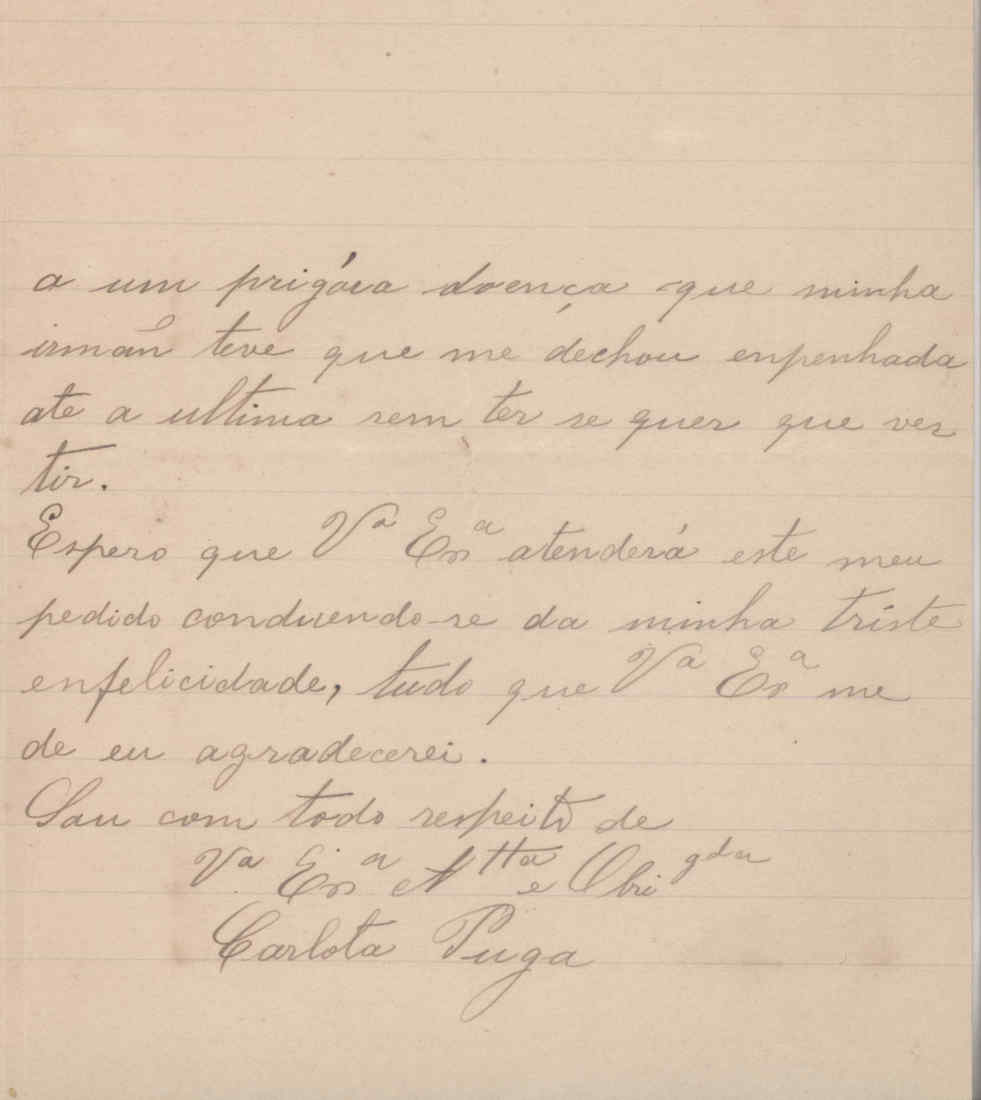 a um prigóza doença que minha
irmãn teve que me dechou enpenhada
ate a ultima sem ter se quer que ves
tir.
Espero que Vª Exª atenderá este meu
pedido conduendo-se da minha triste
enfelicidade, tudo que Vª Exª me
de eu agradecerei.
Sou com todo respeito de
Vª Exª Attª e Obrigda
Carlota Puga